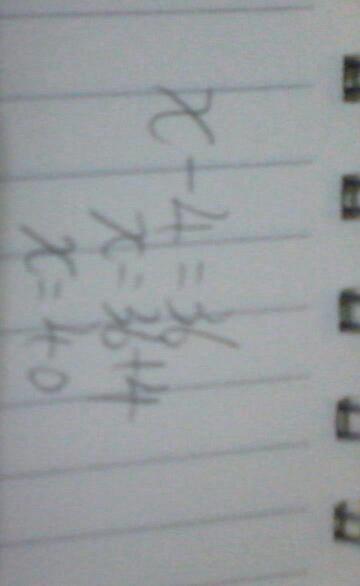 x - 4 = 36
x = 36 + 4
x = 40